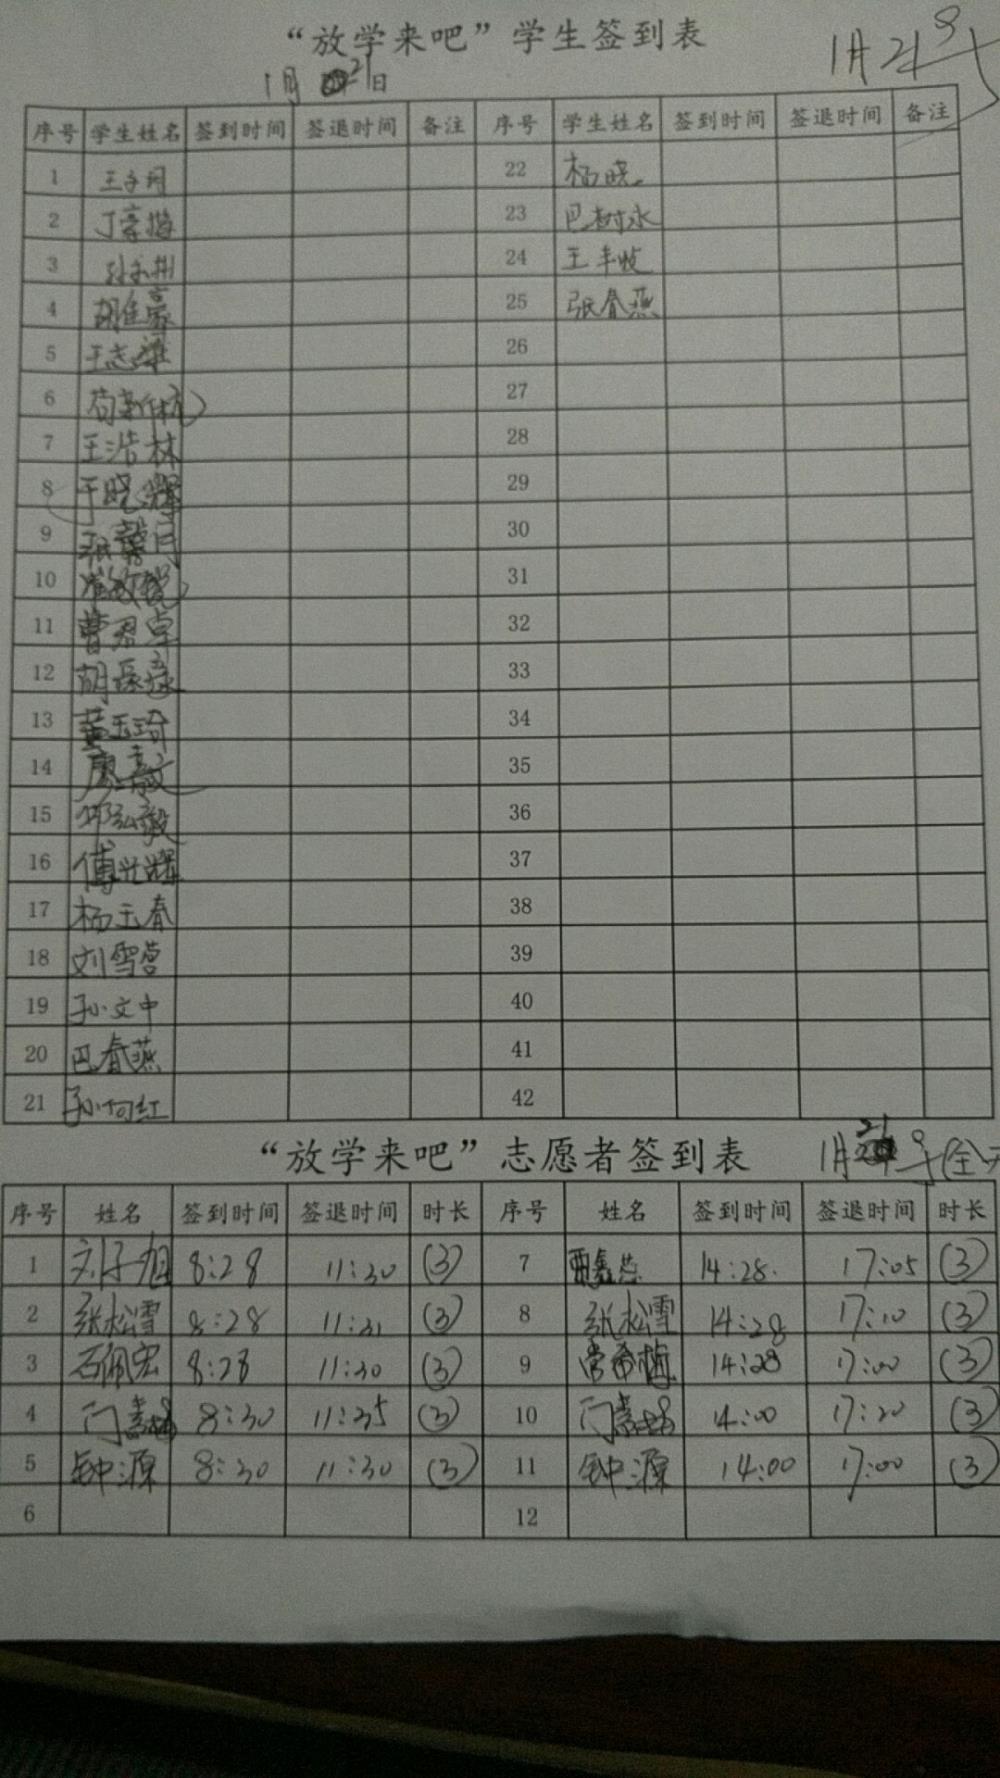 “放学来吧”学生签到表
1月21号
1月21日
序号 学生姓名 签到时间 签退时间 备注 序号 学生姓名 签到时间 签退时间 备注
1 22 杨晓
2 23 巴树永
3 24 王丰收
4 胡佳豪 25 张春燕
5 王志 26
6 27
7 王浩林 28
8 于晓辉 29
9 张馨月 30
10 崔敏锐 31
11 曹君卓 32
12 胡琢 33
13 黄玉琦 34
14 廖 35
15 邓弘毅 36
16 傅光辉 37
17 杨玉春 38
18 刘雪营 39
19 孙文中 40
20 巴春燕 41
21 孙向红 42
“放学来吧”志愿者签到表 1月21号(全天
序号 姓名 签到时间 签退时间 时长 序号 姓名 签到时间 签退时间 时长
1 刘子旭 8:28 11:30 (3) 7 14:28 17:05 (3)
2 张松雪 8:28 11:31 (3) 8 张松雪 14:28 17:10 (3)
3 石佩宏 8:28 11:30 (3) 9 常希梅 14:28 17:00 (3)
4 门 8:30 11:35 (3) 10 门 14:00 17:20 (3)
5 钟源 8:30 11:30 (3) 11 钟源 14:00 17:00 (3)
6 12